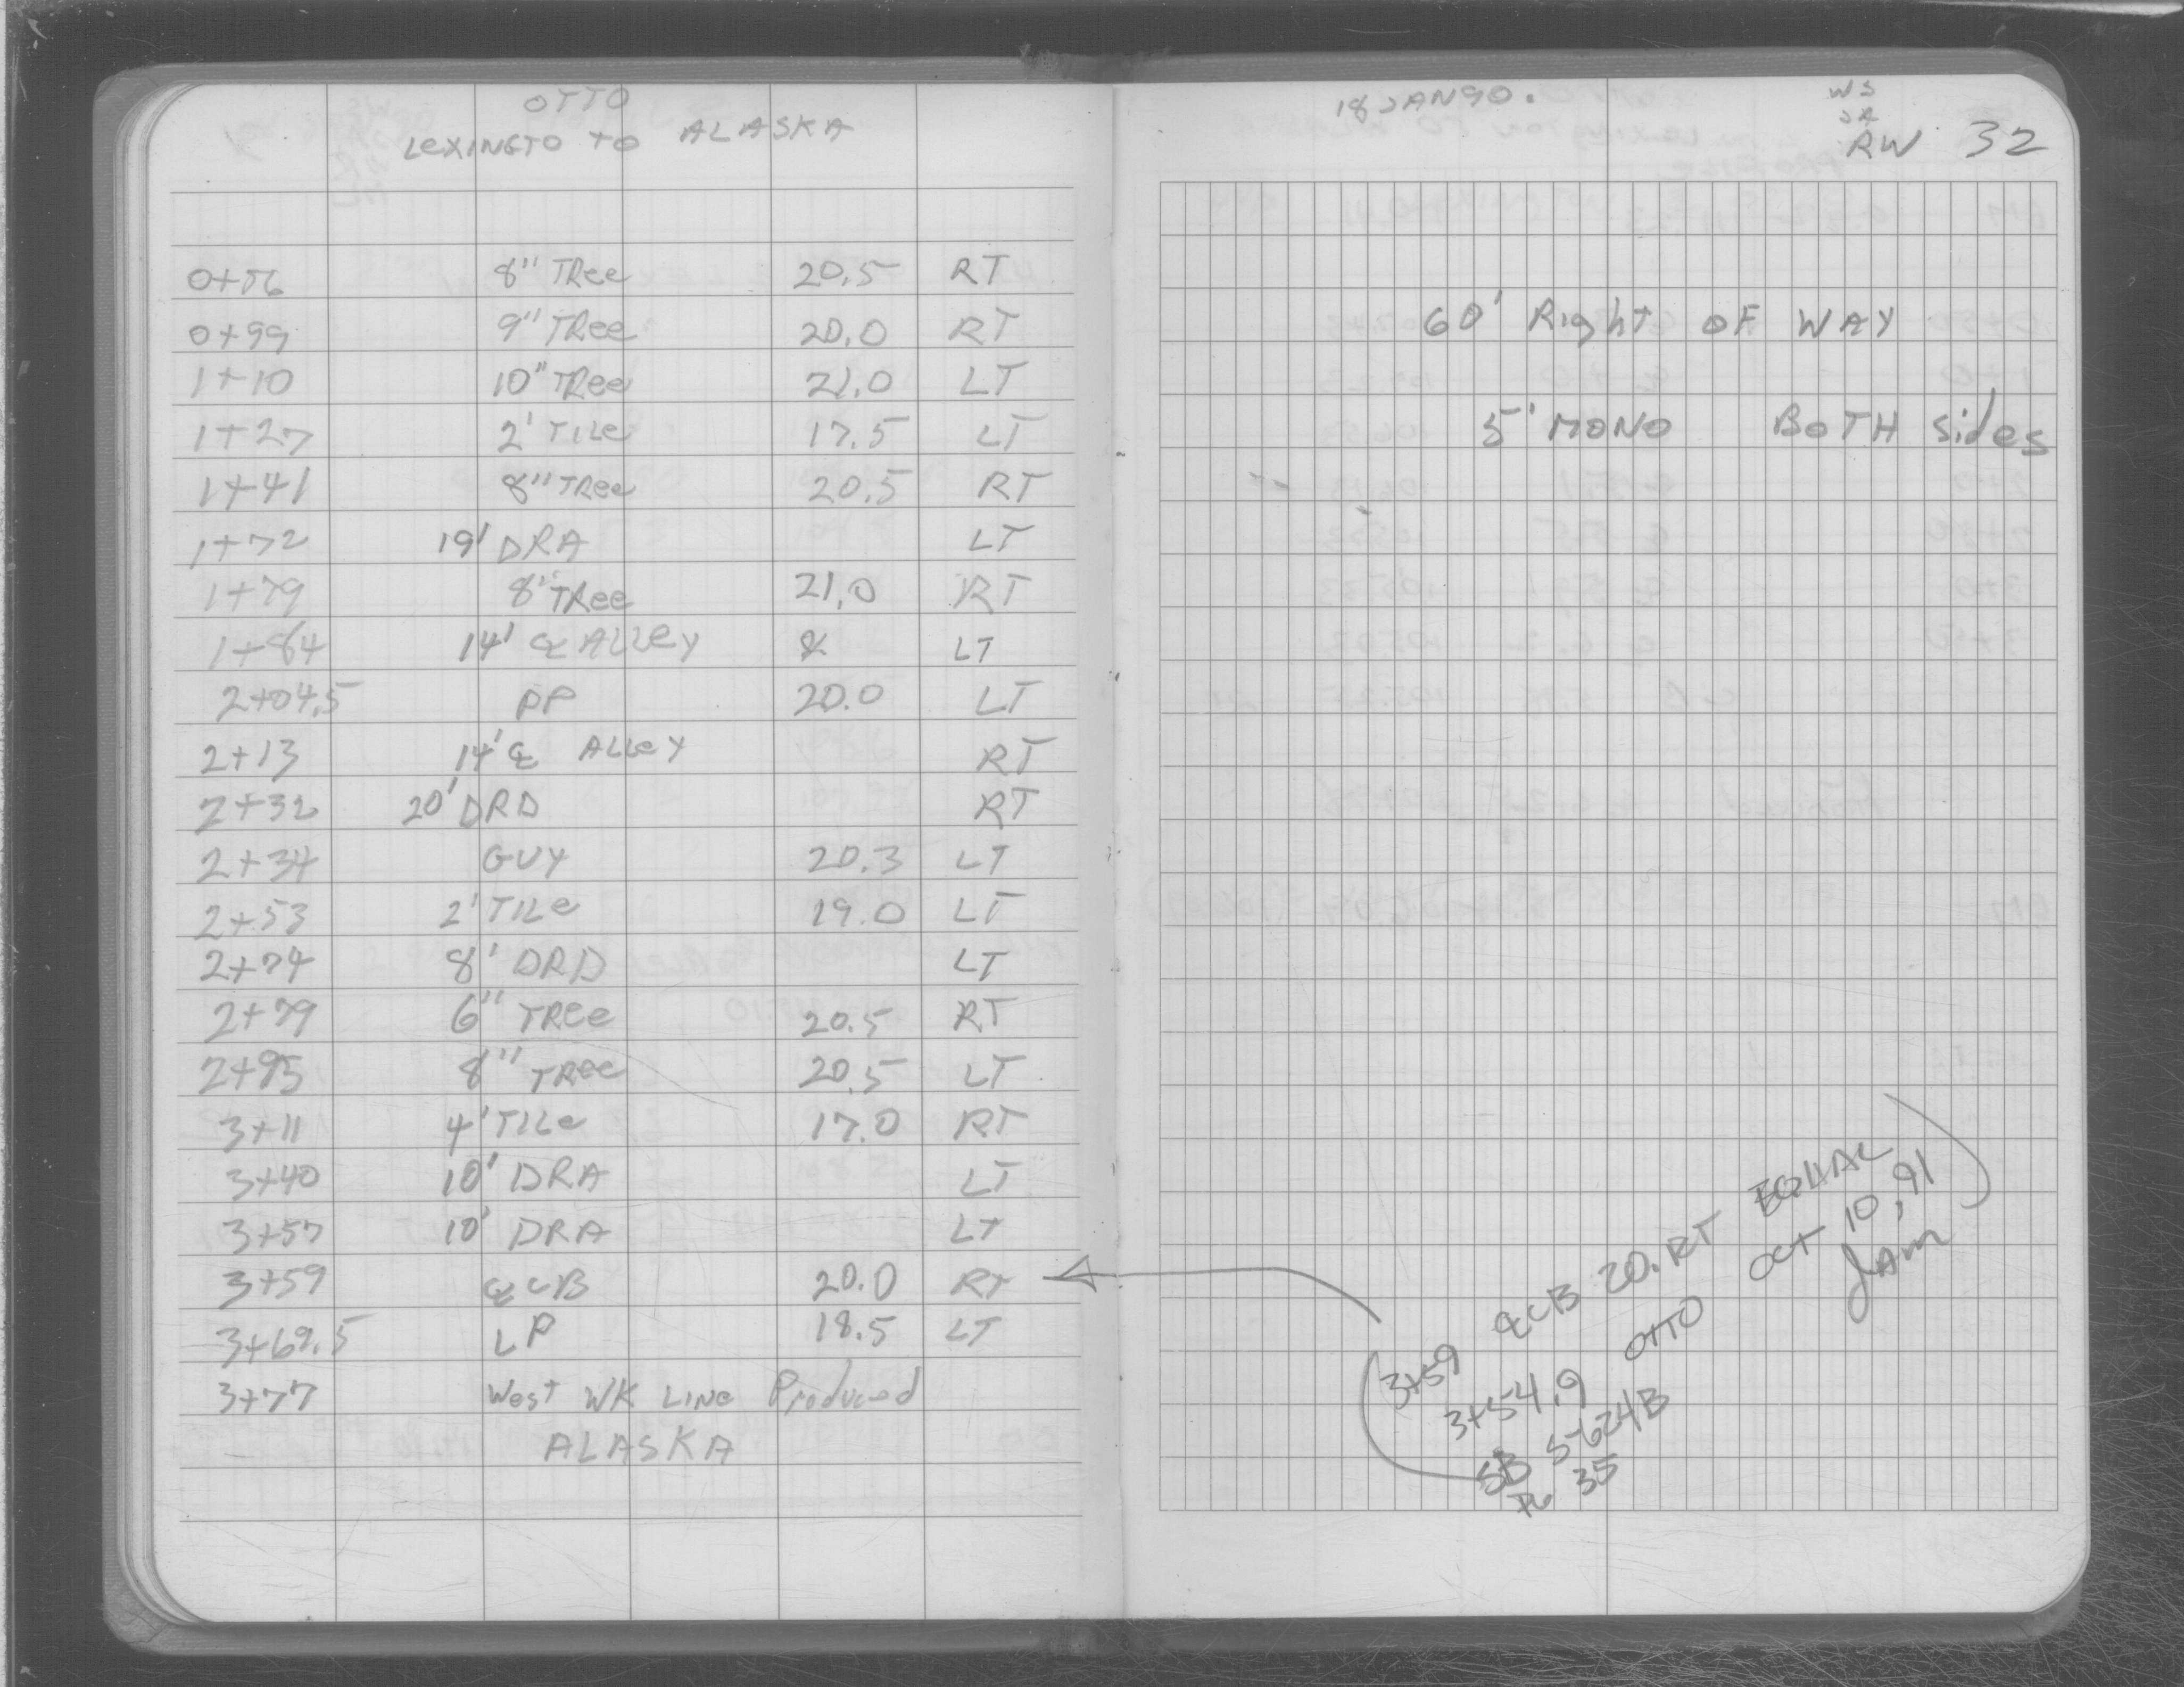 OTTO
LEXINGTO to ALASKA
0+56 8" TRee 20.5 RT
0+99 9" TRee 20.0 RT
1+10 10" TRee 21.0 LT
1+27 2' TILe 17.5 LT
1+41 8" TRee 20.5 RT
1+72 19' DRA LT
1+79 8" TRee 21.0 RT
1+84 14' ℄ ALLey ℄ LT
2+04.5 PP 20.0 LT
2+13 14' ℄ ALLeY RT
2+32 20' DRD RT
2+34 GUY 20.3 LT
2+53 2' TILe 19.0 LT
2+74 8' DRD LT
2+79 6" TRee 20.5 RT
2+95 8" TRee 20.5 LT
3+11 4' TILe 17.0 RT
3+40 10' DRA LT
3+57 10' DRA LT
3+59 ℄ CB 20.0 RT
3+69.5 LP 18.5 LT
3+77 West WK LINe Produced
ALASKA
18 JAN 90.
WS
JR
RW 32
60' Right OF WAY
5' MONO BOTH sides
3+59 ℄ CB 20. RT EQUAL
3+54.9 OTTO OCT 10, 91
SB 5-624B Jam
PG 35